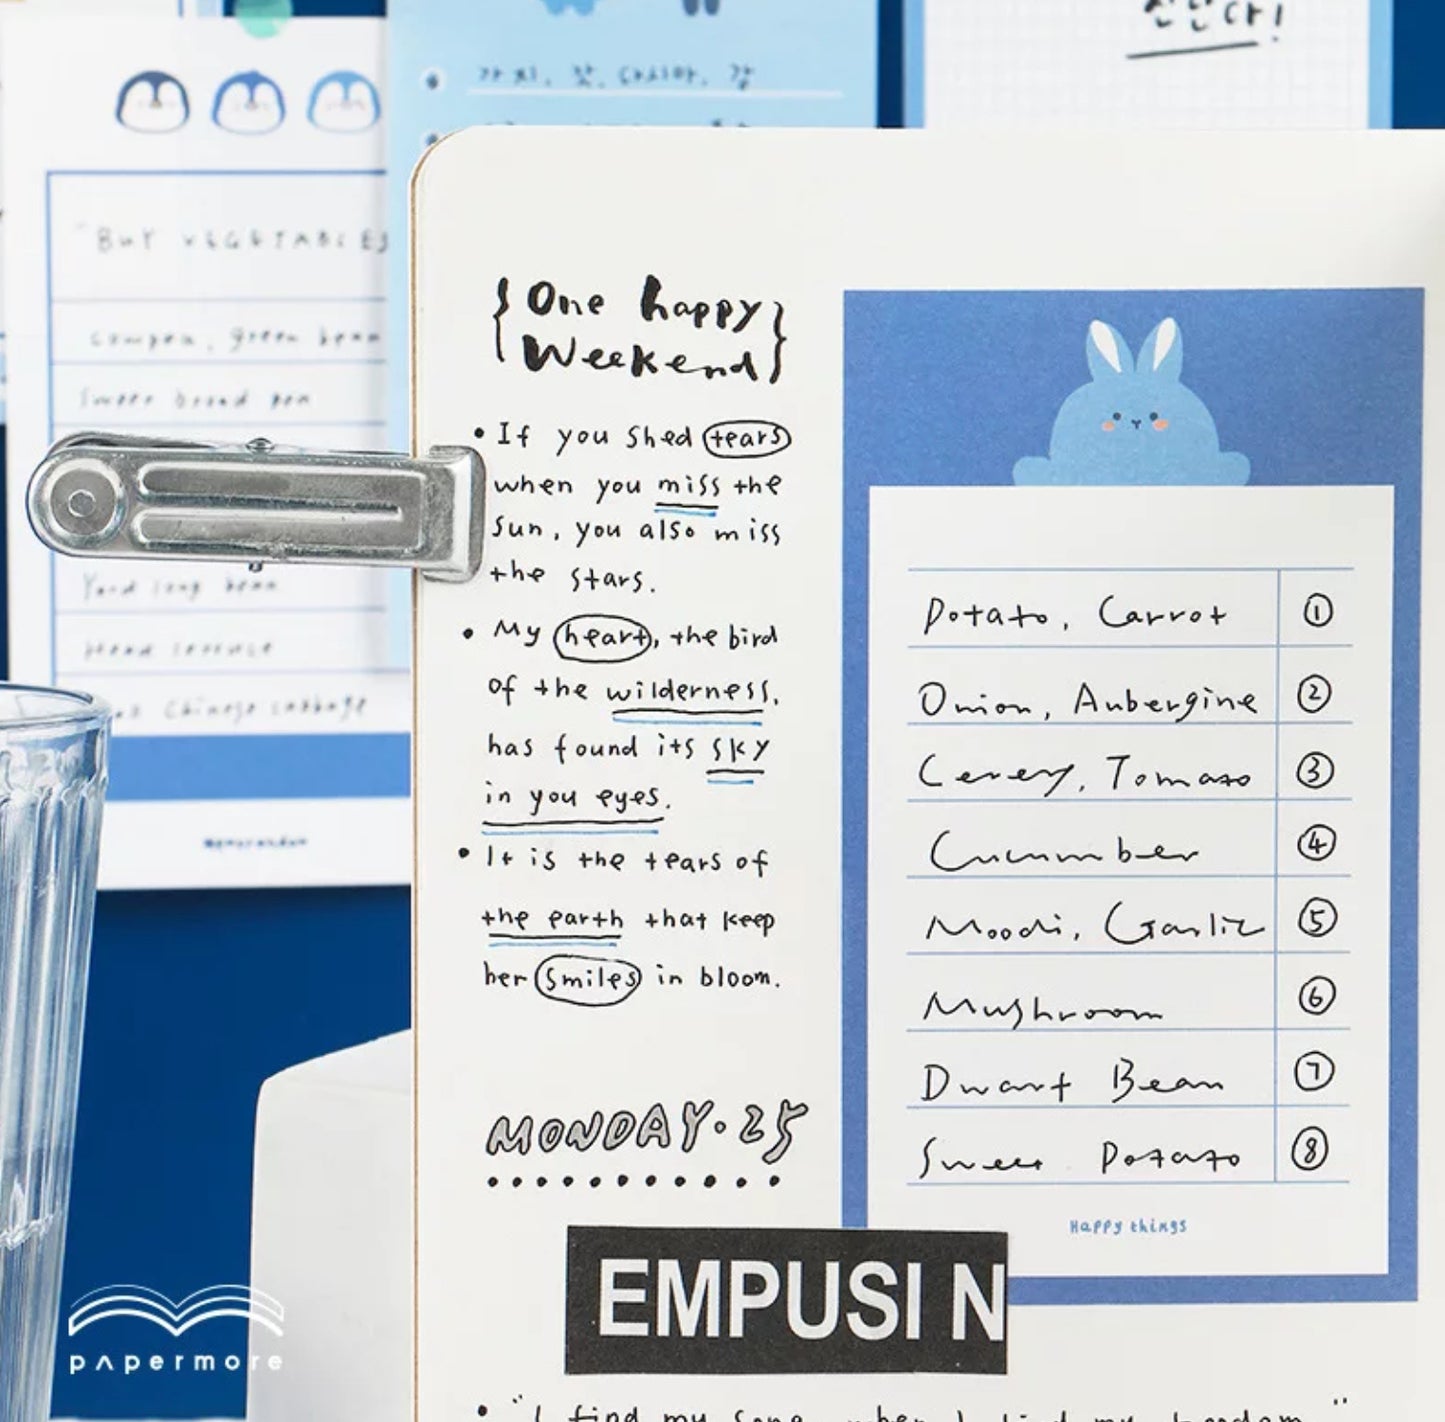 신난다!
가지, 잣, 다시마, 감
"BUY VEGETABLES
cowpea, green bean
Sweet broad pea
Yard long bean
Head lettuce
Chinese cabbage
Memorandum
{One happy
Weekend}
• If you shed tears
when you miss the
sun, you also miss
the stars.
• My heart, the bird
of the wilderness,
has found its sky
in you eyes.
• It is the tears of
the earth that keep
her smiles in bloom.
MONDAY·25
Potato, Carrot ①
Onion, Aubergine ②
Celery, Tomato ③
Cucumber ④
Moodi, Garlic ⑤
Mushroom ⑥
Dwarf Bean ⑦
Sweet Potato ⑧
Happy things
EMPUSI N
• "I find my song when I find my freedom"
papermore